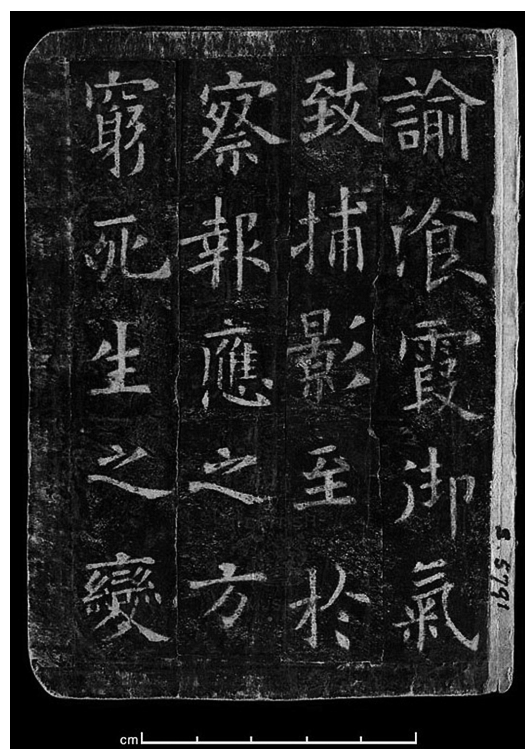 諭飡霞御氣
致捕影至於
察報應之方
窮死生之變
S. 5791
cm